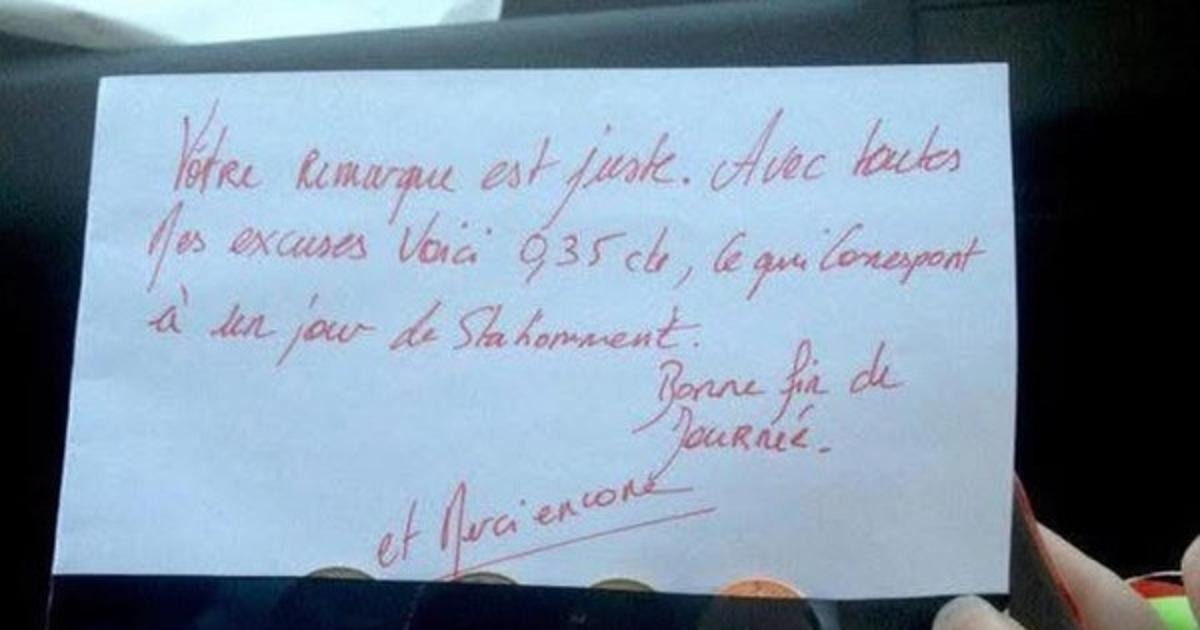 Vôtre Remarque est juste. Avec toutes
Mes excuses Voici 0,35 cts, Ce qui Correspont
à un jour de Stationnment.
Bonne fin de
Journée.
et Merci encore